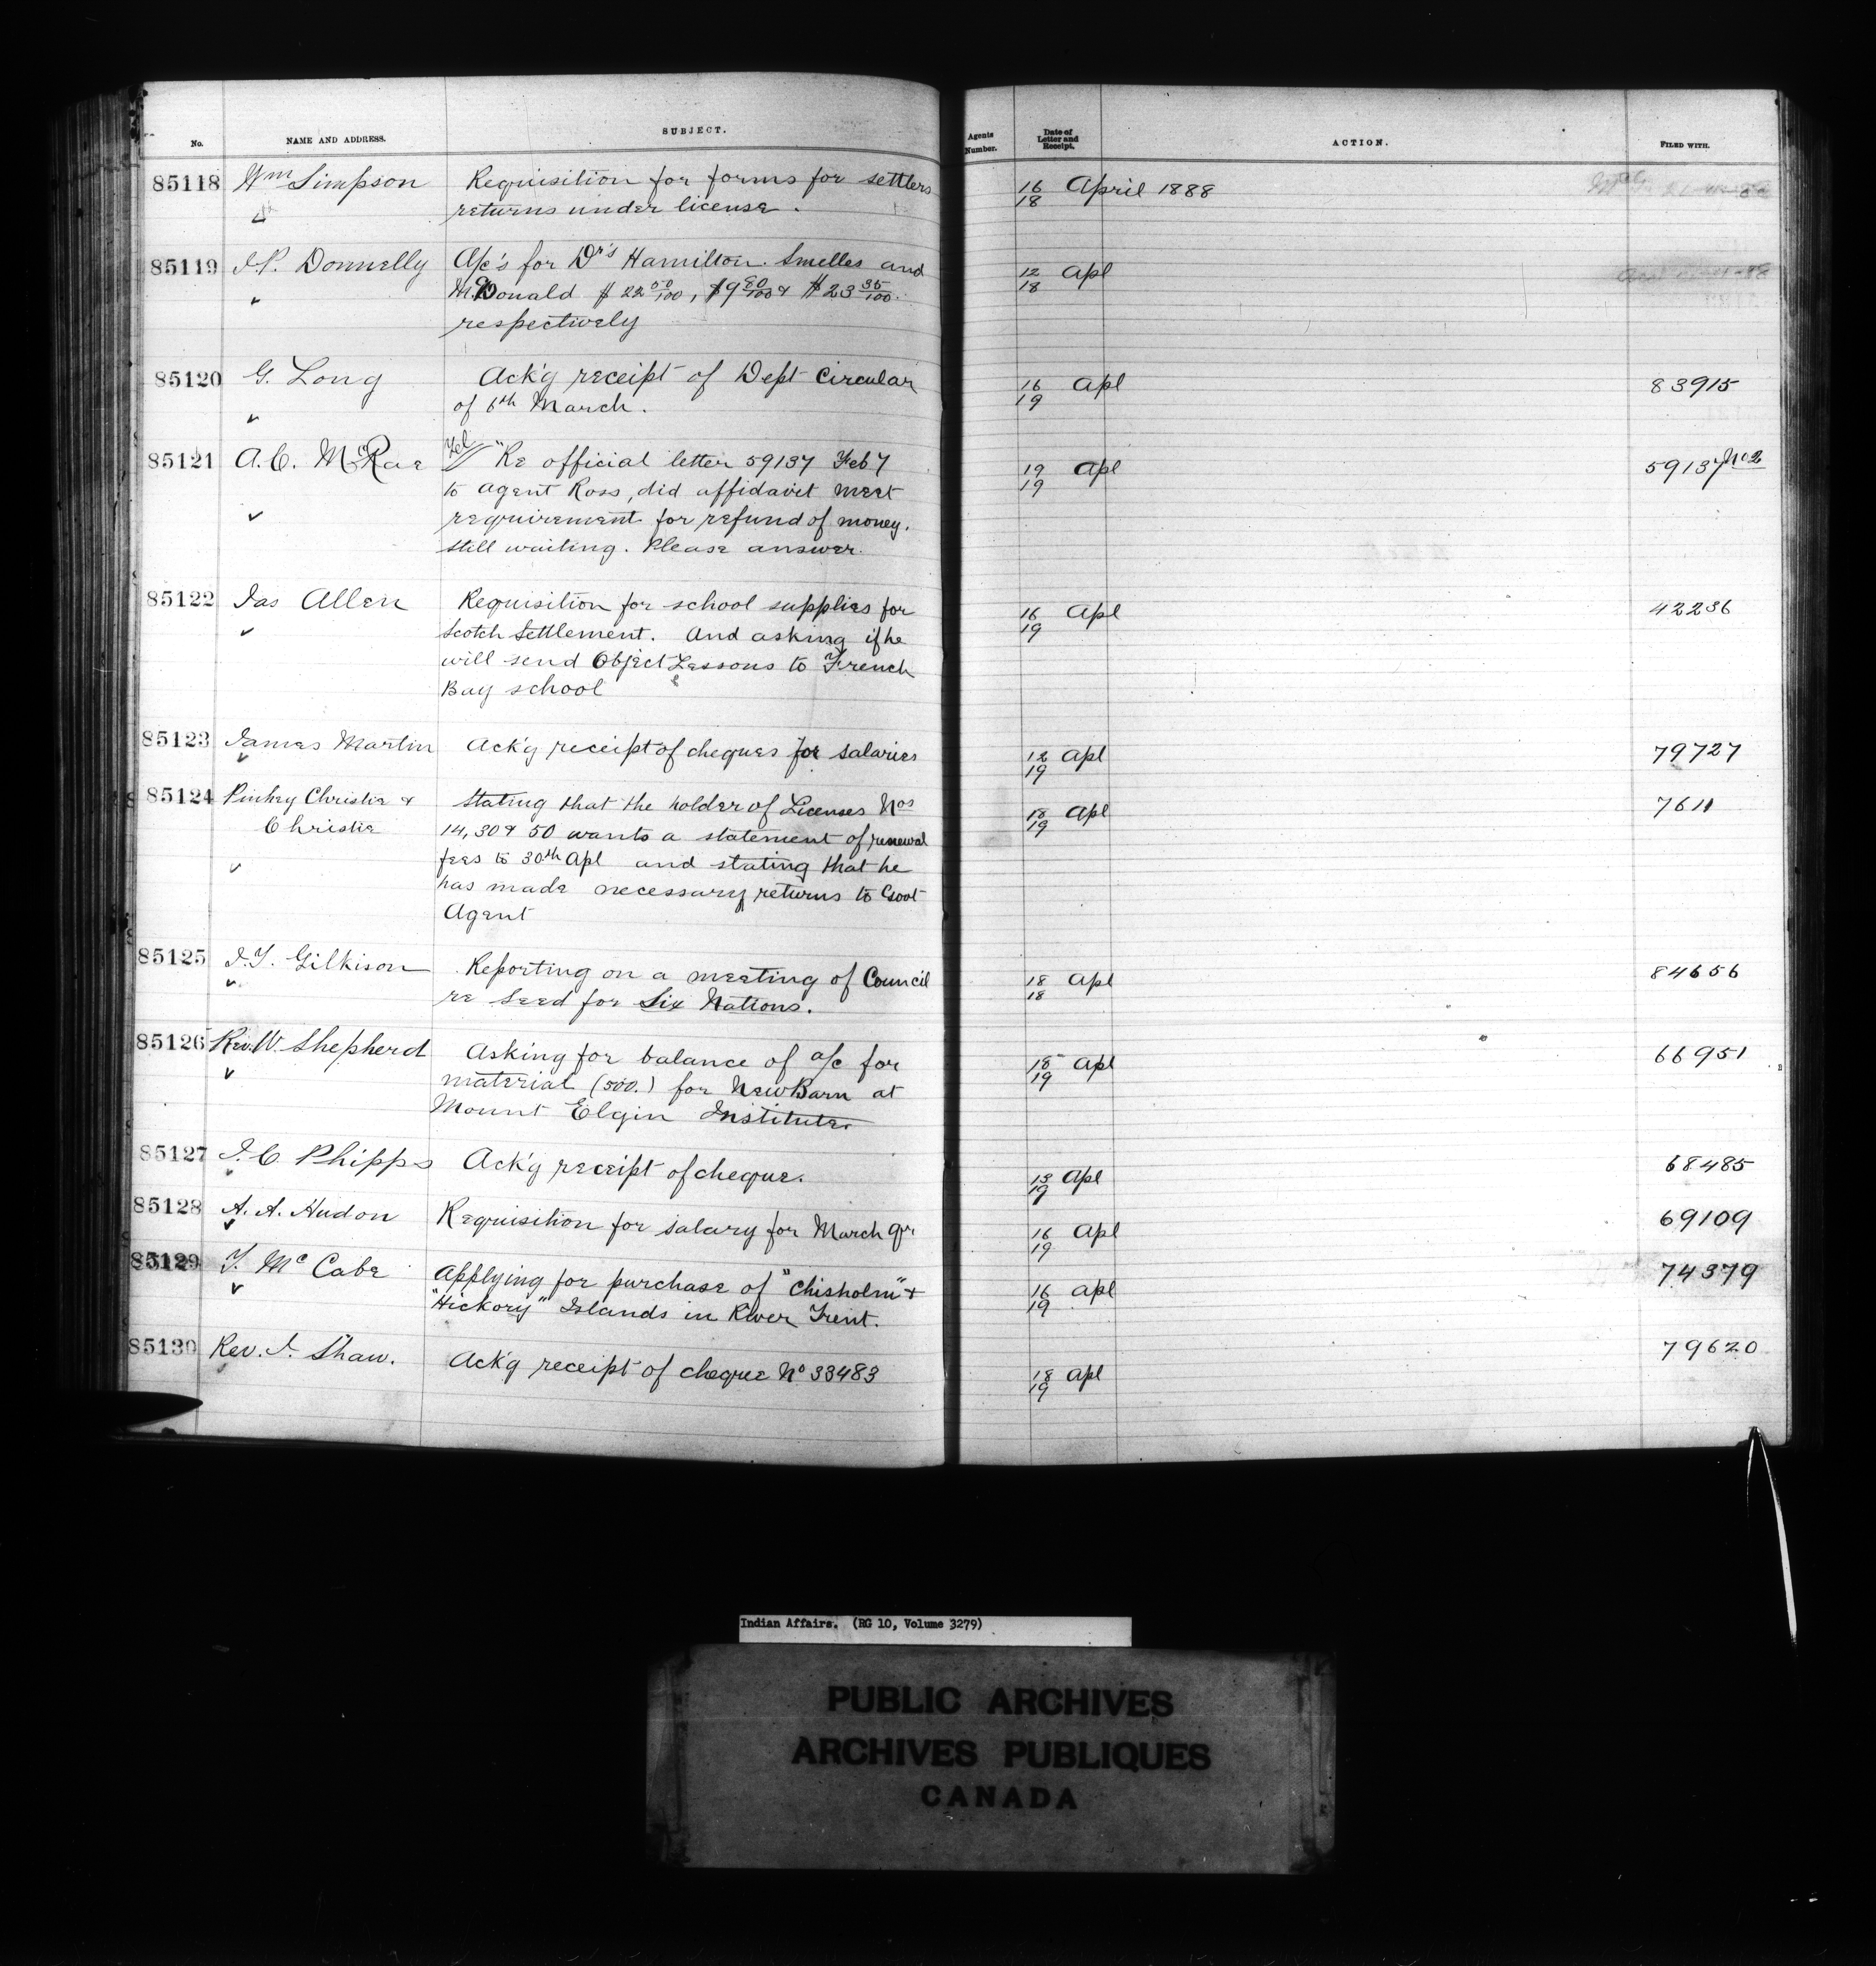 No. NAME AND ADDRESS. SUBJECT. Agents Number. Date of Letter and Receipt. ACTION. FILED WITH.
85118 Wm Simpson Requisition for forms for settlers 16/18 April 1888
returns under license.
85119 J.P. Donnelly A/c's for Dr's Hamilton. Smelles and 12/18 Apl
McDonald $22 00/100, $9 80/100 & $23 35/100.
respectively
85120 G. Long Ack'g receipt of Dept Circular 16/19 Apl 83915
of 6th March.
85121 A.C. McRae Tel "Re official letter 59137 Feb 7 19/19 Apl 59137 No 2
to agent Ross, did affidavit meet
requirement for refund of money.
Still waiting. Please answer.
85122 Jas Allen Requisition for school supplies for 16/19 Apl 42236
Scotch Settlement. And asking if he
will send Object Lessons to French
Bay school
85123 James Martin Ack'g receipt of cheques for salaries 12/19 Apl 79727
85124 Pinkey Christie & Stating that the holder of Licenses Nos 18/19 Apl 7611
Christie 14, 30 & 50 wants a statement of renewal
fees to 30th Apl and stating that he
has made necessary returns to Govt
Agent
85125 J.T. Gilkison Reporting on a meeting of Council 18/18 Apl 84656
re Seed for Six Nations.
85126 Rev. W. Shepherd Asking for balance of a/c for 18/19 Apl 66951
material (500.) for New Barn at
Mount Elgin Institute.
85127 J.C. Phipps Ack'g receipt of cheque. 13/19 Apl 68485
85128 A. A. Hudon Requisition for salary for March qr. 16/19 Apl 69109
85129 T. McCabe Applying for purchase of "Chisholm" & 16/19 Apl 74379
"Hickory" Islands in River Trent.
85130 Rev. J. Shaw. Ack'g receipt of cheque No 33483 18/19 Apl 79620
Indian Affairs. (RG 10, Volume 3279)
PUBLIC ARCHIVES
ARCHIVES PUBLIQUES
CANADA